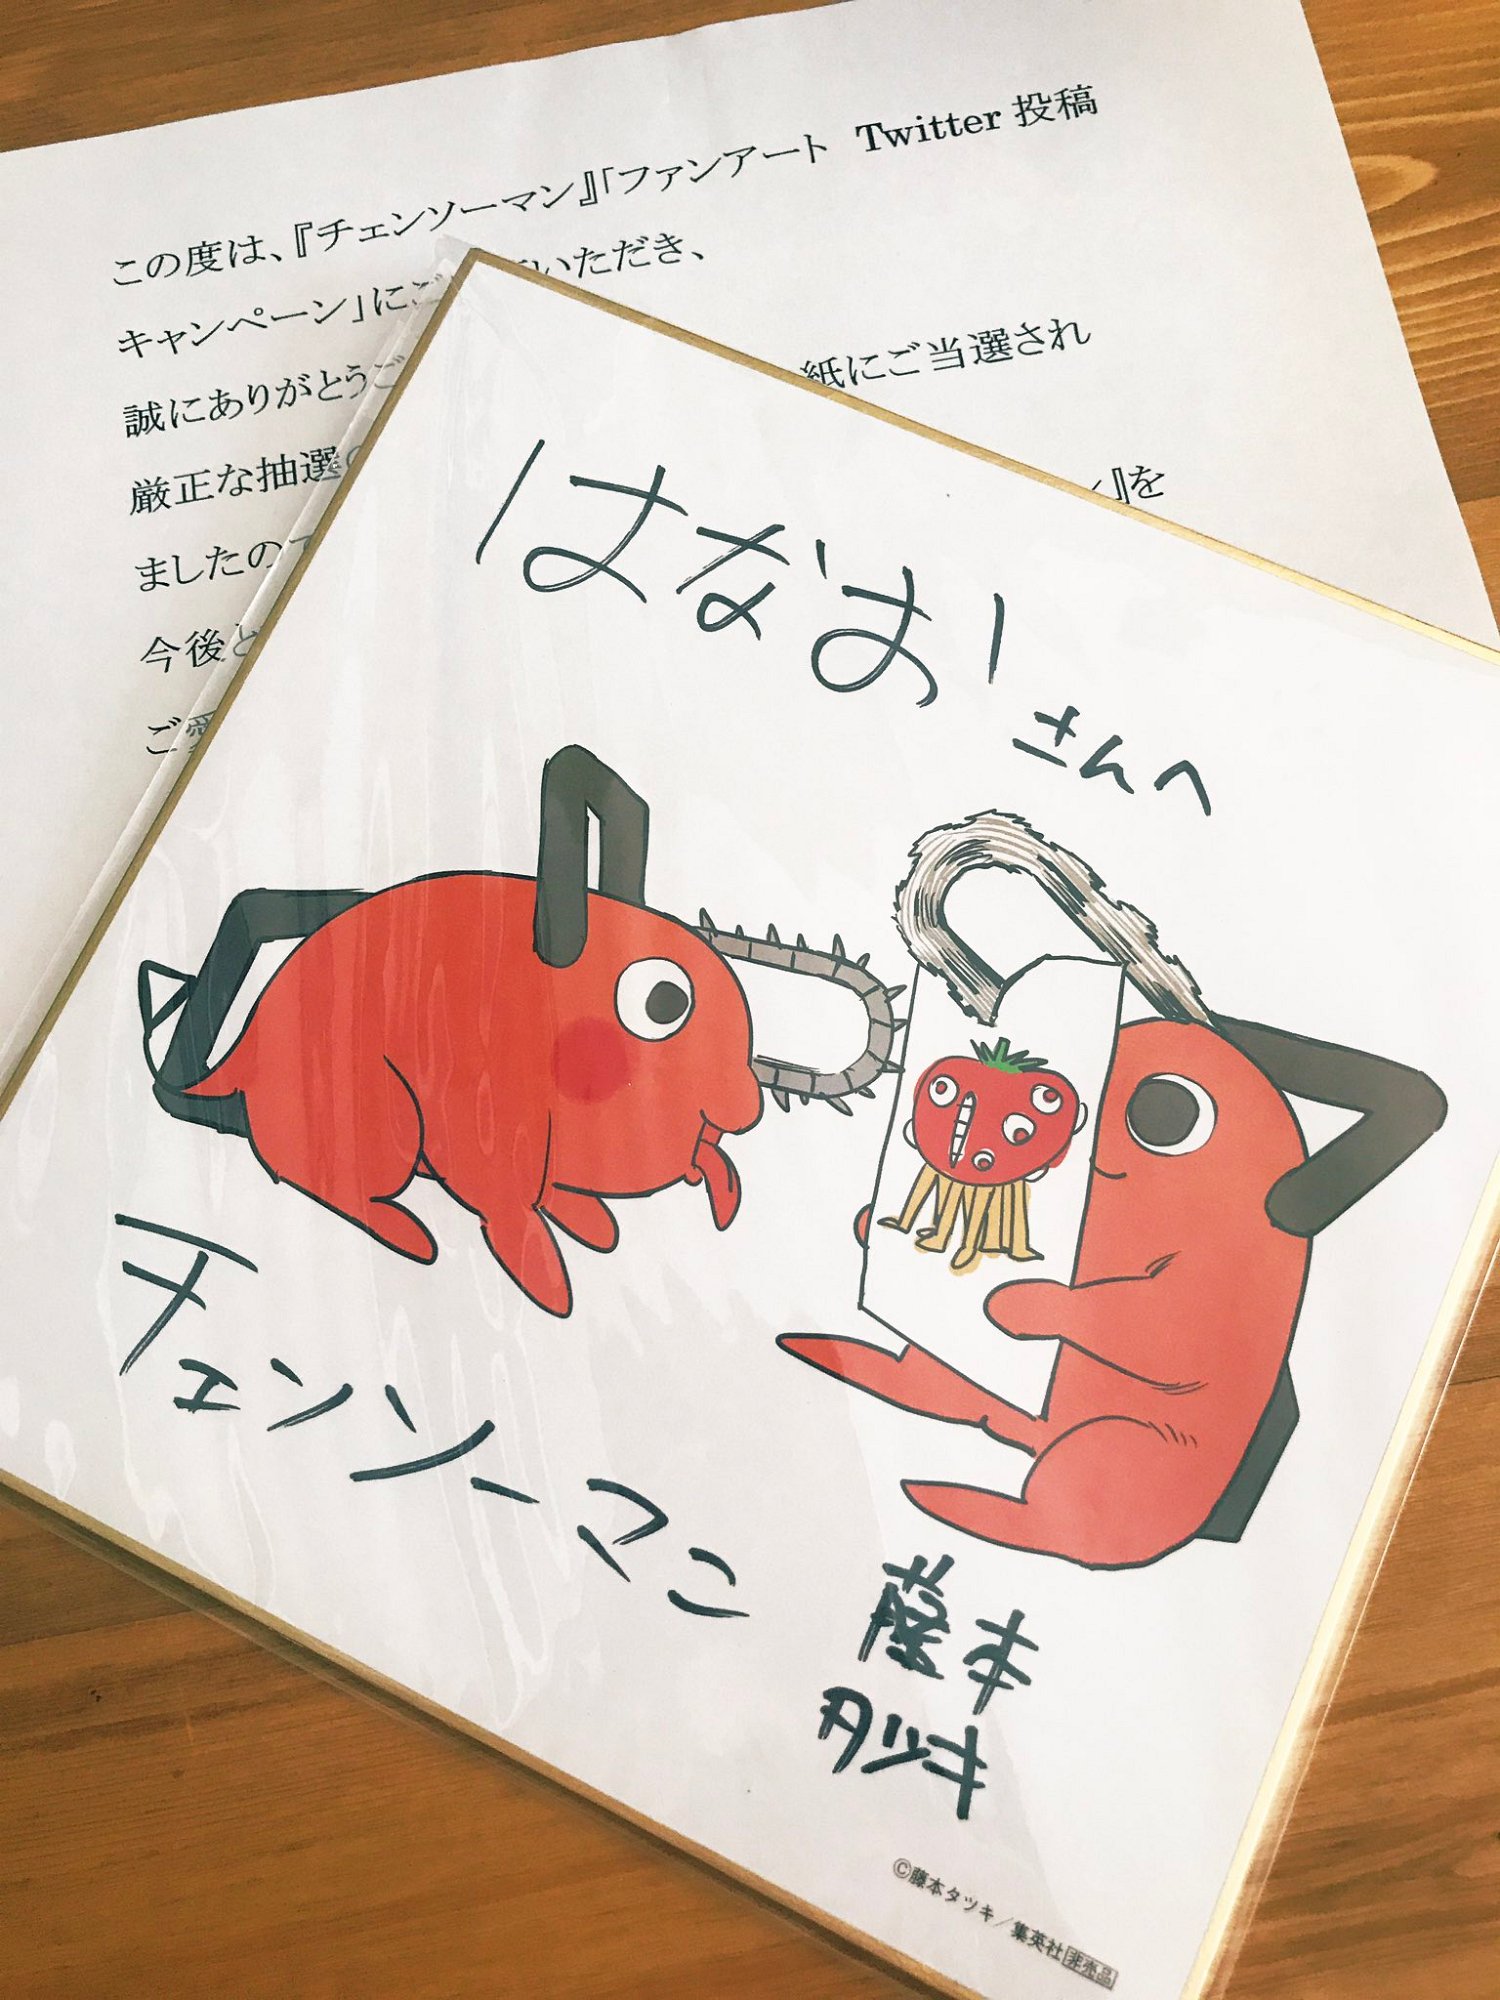 この度は、『チェンソーマン』「ファンアート Twitter 投稿
キャンペーン」にご いただき、
誠にありがとうご
厳正な抽選 紙にご当選され
ましたので 』を
今後と
ご愛
はなお
さんへ
チェンソーマン
藤本
タツキ
©藤本タツキ／集英社 非売品